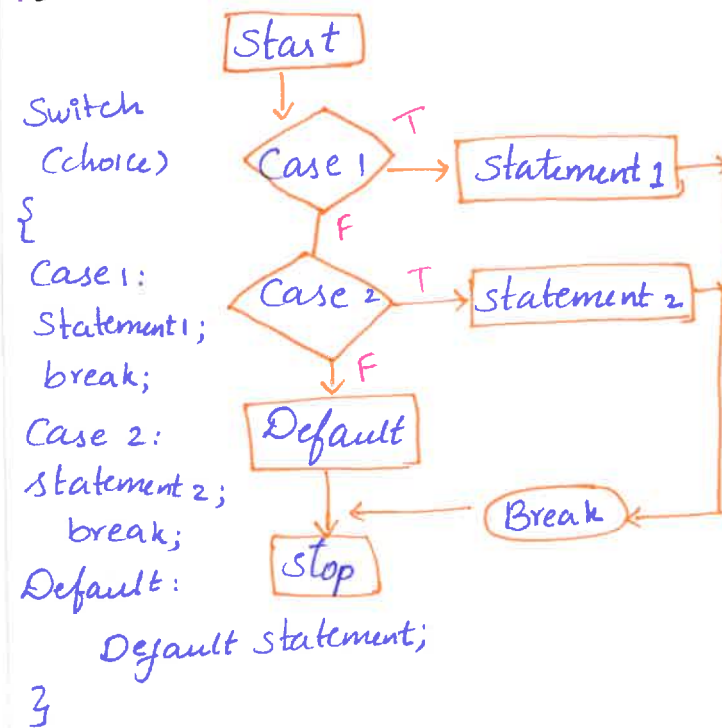 Start
Switch
(choice)
{
Case 1:
Statement1;
break;
Case 2:
statement 2;
break;
Default:
Default statement;
}
Case 1
T
Statement 1
F
Case 2
T
statement 2
F
Default
Break
stop